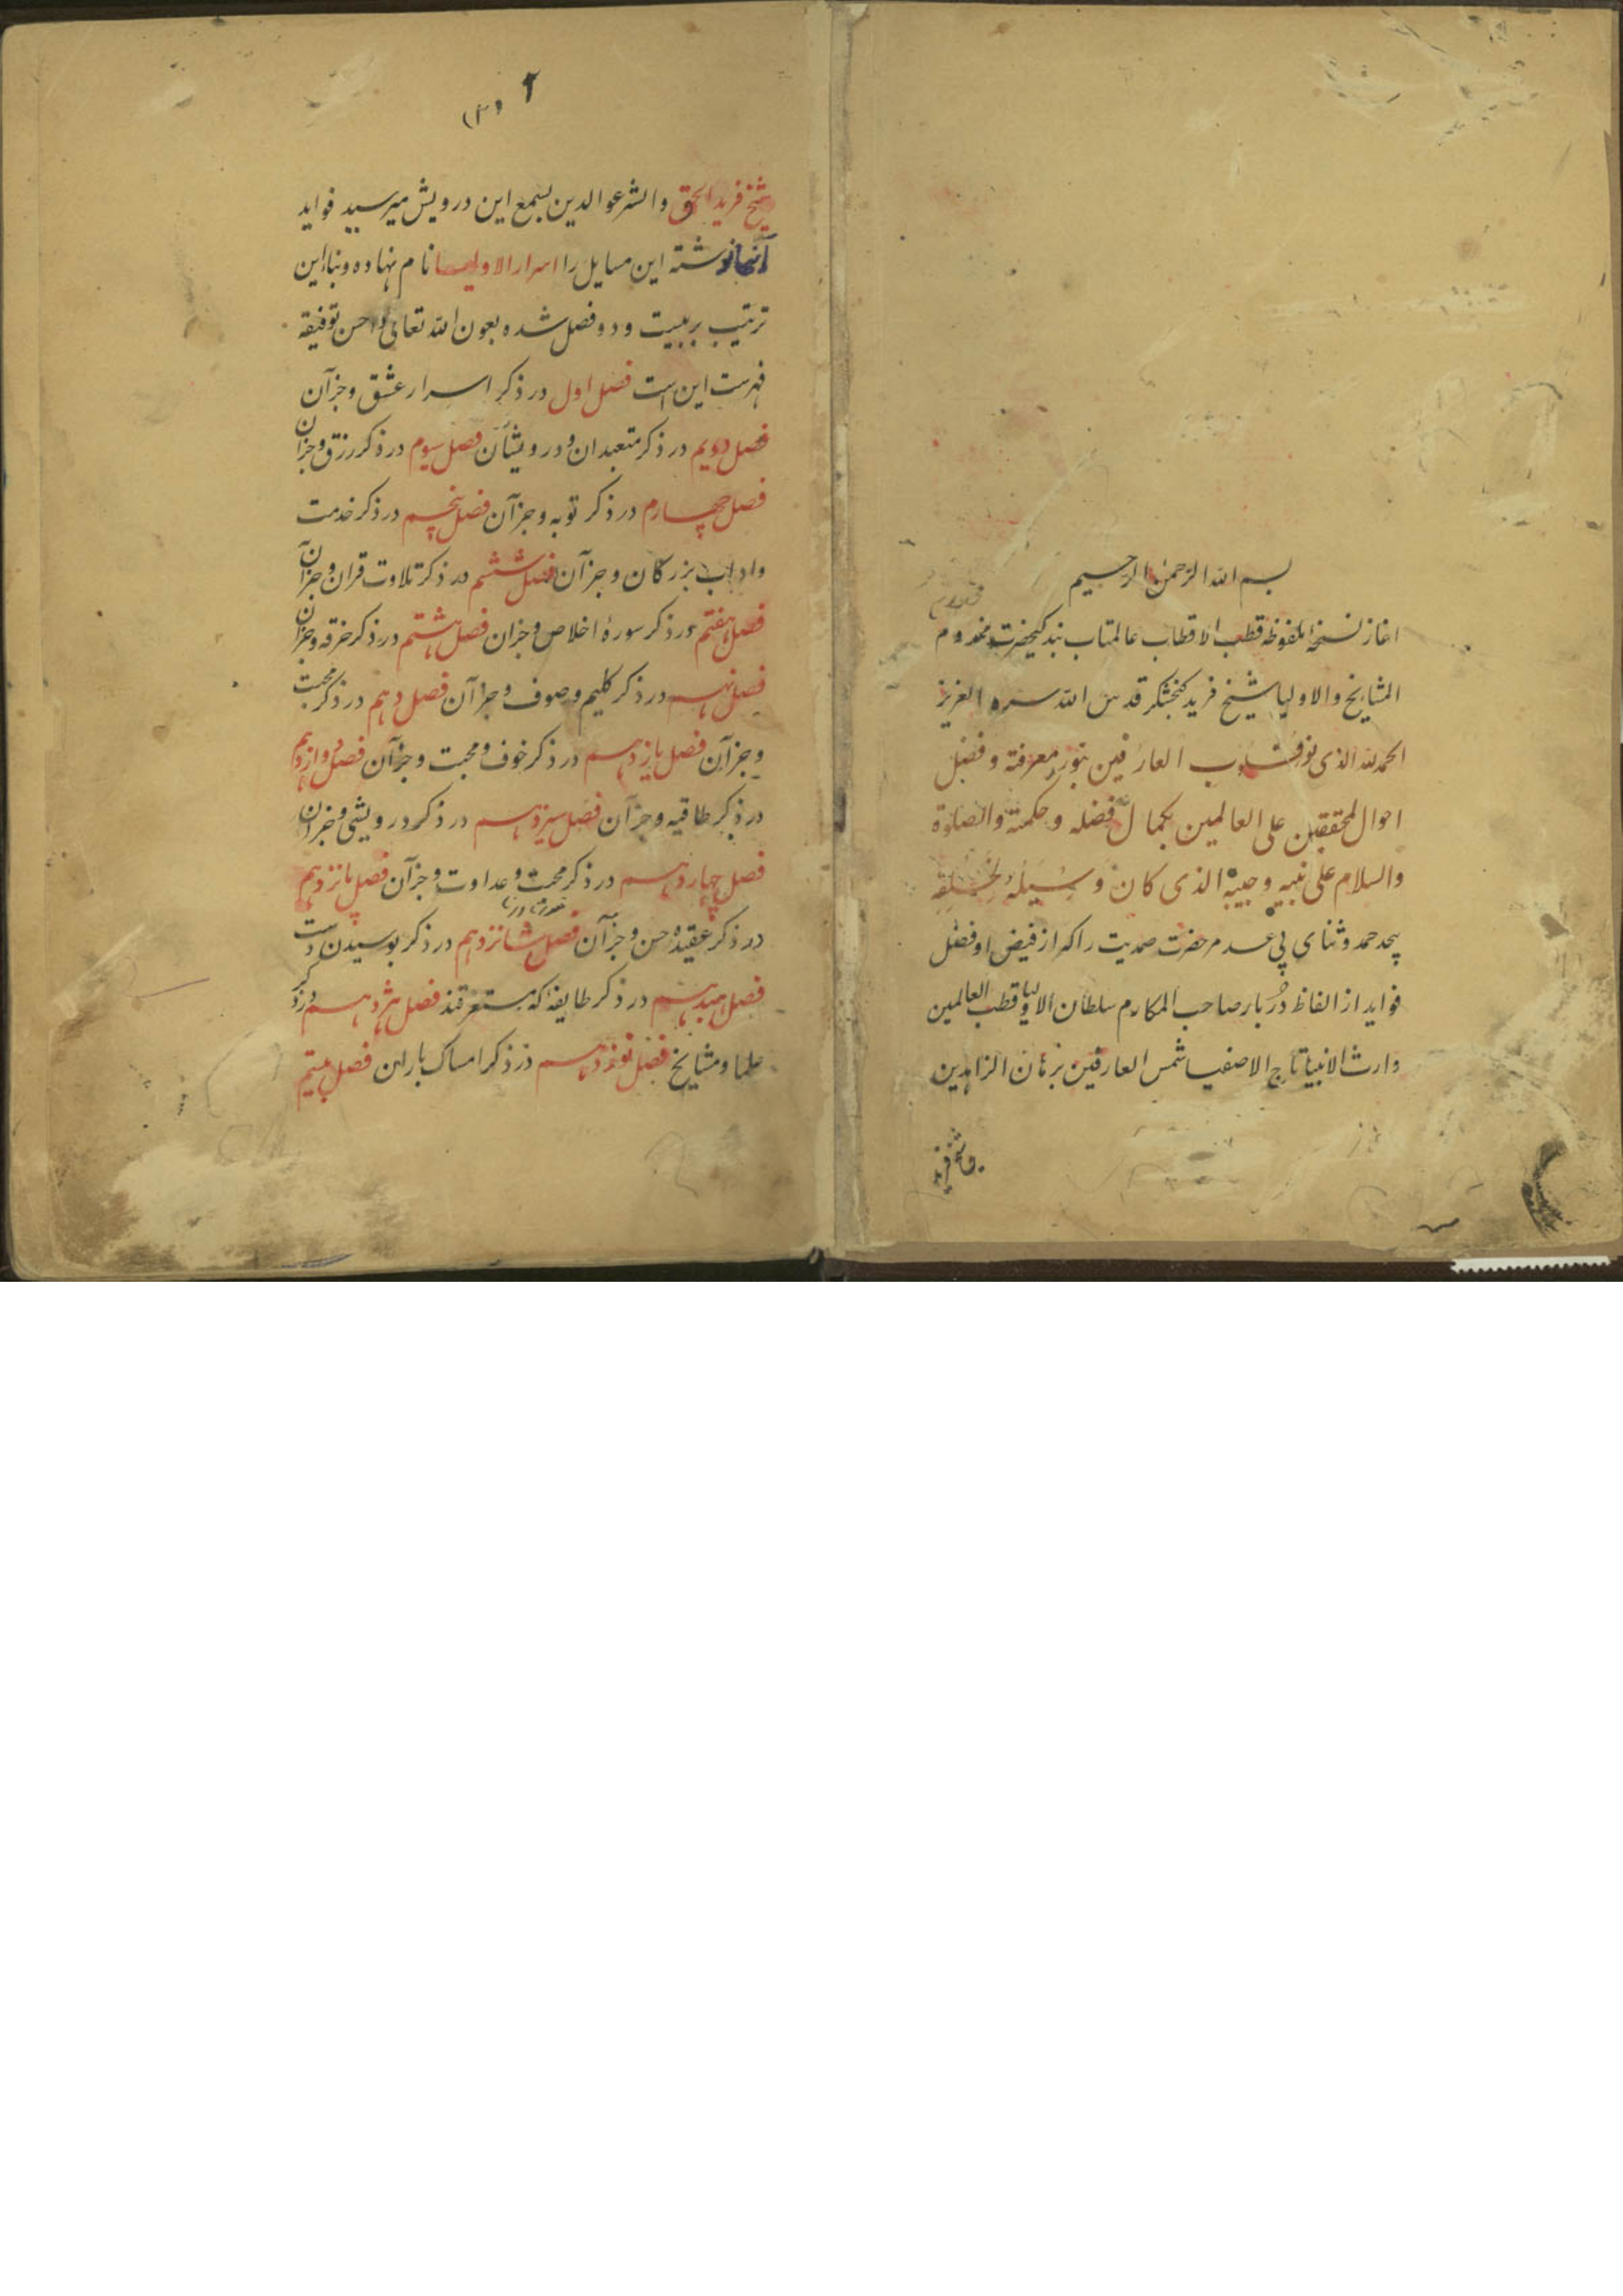 بسم الله الرحمن الرحیم
اغاز نسخهٔ ملفوظه قطب الاقطاب عالمتاب بندکیحضرت مخدوم
المشایخ والاولیا شیخ فرید کنجشکر قدس الله سره العزیز
الحمد لله الذی نور قلوب العارفین بنور معرفته و فضل
احوال المحققین علی العالمین بکمال فضله و حکمته والصلوة
والسلام علی نبیه و حبیبه الذی کان وسیلة لخلقه
بیحد حمد و ثنای بی عدم حضرت صمدیت را که از فیض او فضل
فواید از الفاظ دُربار صاحب المکارم سلطان الاولیا قطب العالمین
وارث الانبیا تاج الاصفیا شمس العارفین برهان الزاهدین
شیخ فرید
۲ (۳)
شیخ فرید الحق والشرع والدین بسمع این درویش میرسید فواید
آنجا نوشته این مسایل را اسرار الاولیا نام نهاده و بنا این
ترتیب بر بیست و دو فصل شده بعون الله تعالی و احسن توفیقه
فهرست این است فصل اول در ذکر اسرار عشق و جزآن
فصل دویم در ذکر متعبدان و درویشان فصل سیوم در ذکر رزق و جزآن
فصل چهارم در ذکر توبه و جزآن فصل پنجم در ذکر خدمت
واداب بزرکان و جزآن فصل ششم در ذکر تلاوت قران و جزآن
فصل هفتم در ذکر سورهٔ اخلاص و جزان فصل هشتم در ذکر خرقه و جزان
فصل نهم در ذکر کلیم و صوف و جزآن فصل دهم در ذکر محبت
و جزآن فصل یازدهم در ذکر خوف و محبت و جزآن فصل دوازدهم
در ذکر طاقیه و جزآن فصل سیزدهم در ذکر درویشی و جزان
فصل چهاردهم در ذکر محبت و عداوت و جزآن فصل پانزدهم
در ذکر عقیده حسن و جزآن فصل شانزدهم در ذکر بوسیدن دست
فصل هبدهم در ذکر طایفهٔ که مستغرقند فصل هژدهم در ذکر
علما و مشایخ فصل نوزدهم در ذکر امساک باران فصل بیستم